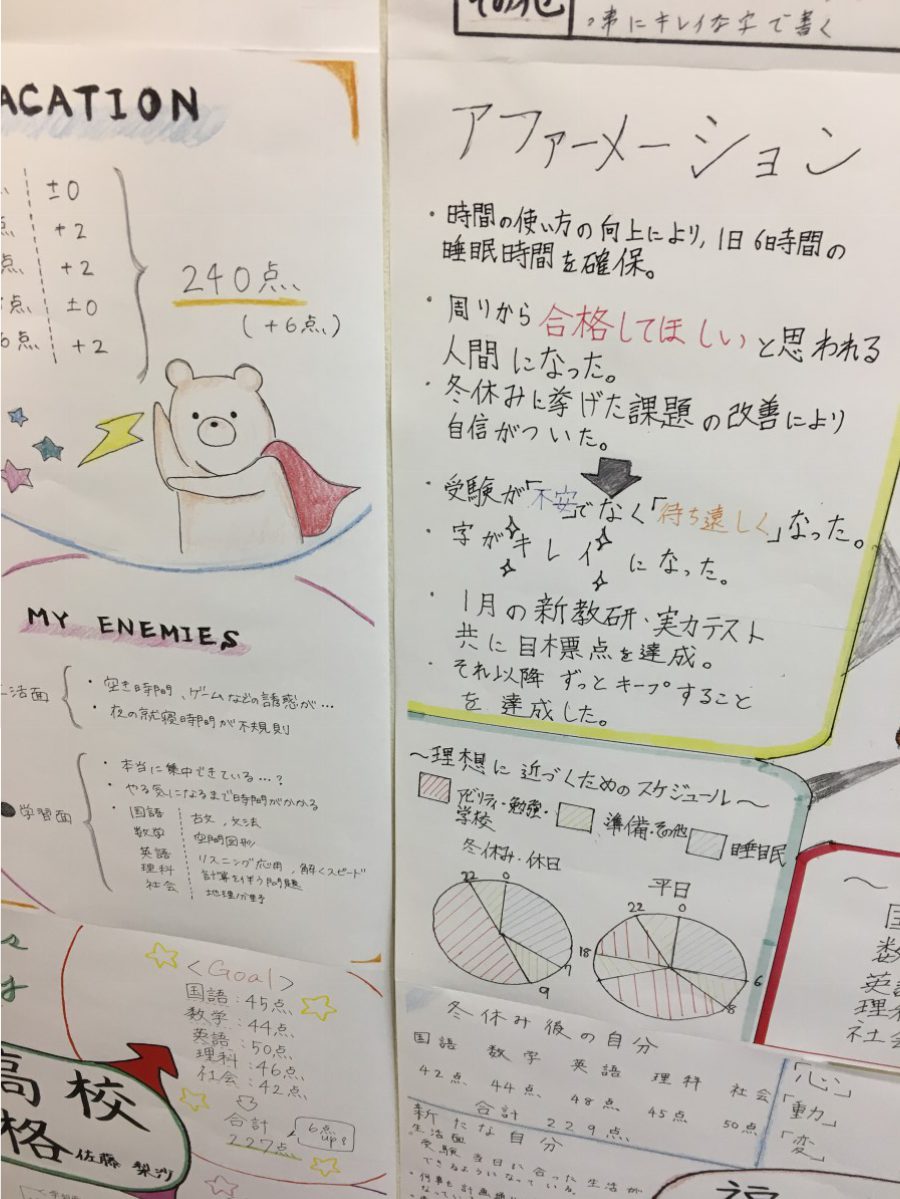 ACATION
±0
+2
点 +2
点 ±0
6点 +2
240点
(+6点)
MY ENEMIES
活面
・空き時間、ゲームなどの誘惑が…
・夜の就寝時間が不規則
学習面
・本当に集中できている…?
・やる気になるまで時間がかかる
・国語 古文、文法
数学 空間図形
英語 リスニング応用、解くスピード
理科 計算を伴う問題
社会 地理分野
<Goal>
国語:45点
数学:44点
英語:50点
理科:46点
社会:42点
合計
227点
6点
up!
高校
格
佐藤 梨沙
事にキレイな字で書く
アファーメーション
・時間の使い方の向上により,1日6時間の
睡眠時間を確保。
・周りから合格してほしいと思われる
人間になった。
・冬休みに挙げた課題の改善により
自信がついた。
・受験が「不安」でなく「待ち遠しく」なった。
・字がキレイになった。
・1月の新教研・実力テスト
共に目標点を達成。
・それ以降ずっとキープすること
を達成した。
～理想に近づくためのスケジュール～
アビリティ・勉強・
学校
準備・その他
睡眠
冬休み・休日
22 0
7
9
平日
22 0
18
6
8
～
国
数
英語
理科
社会
冬休み後の自分
国語 数学 英語 理科 社会
42点 44点 48点 45点 50点
合計 229点
「心」
「動力」
「変」
新たな自分
生活面
・受験当日に合った生活が
できるようになっている。
福